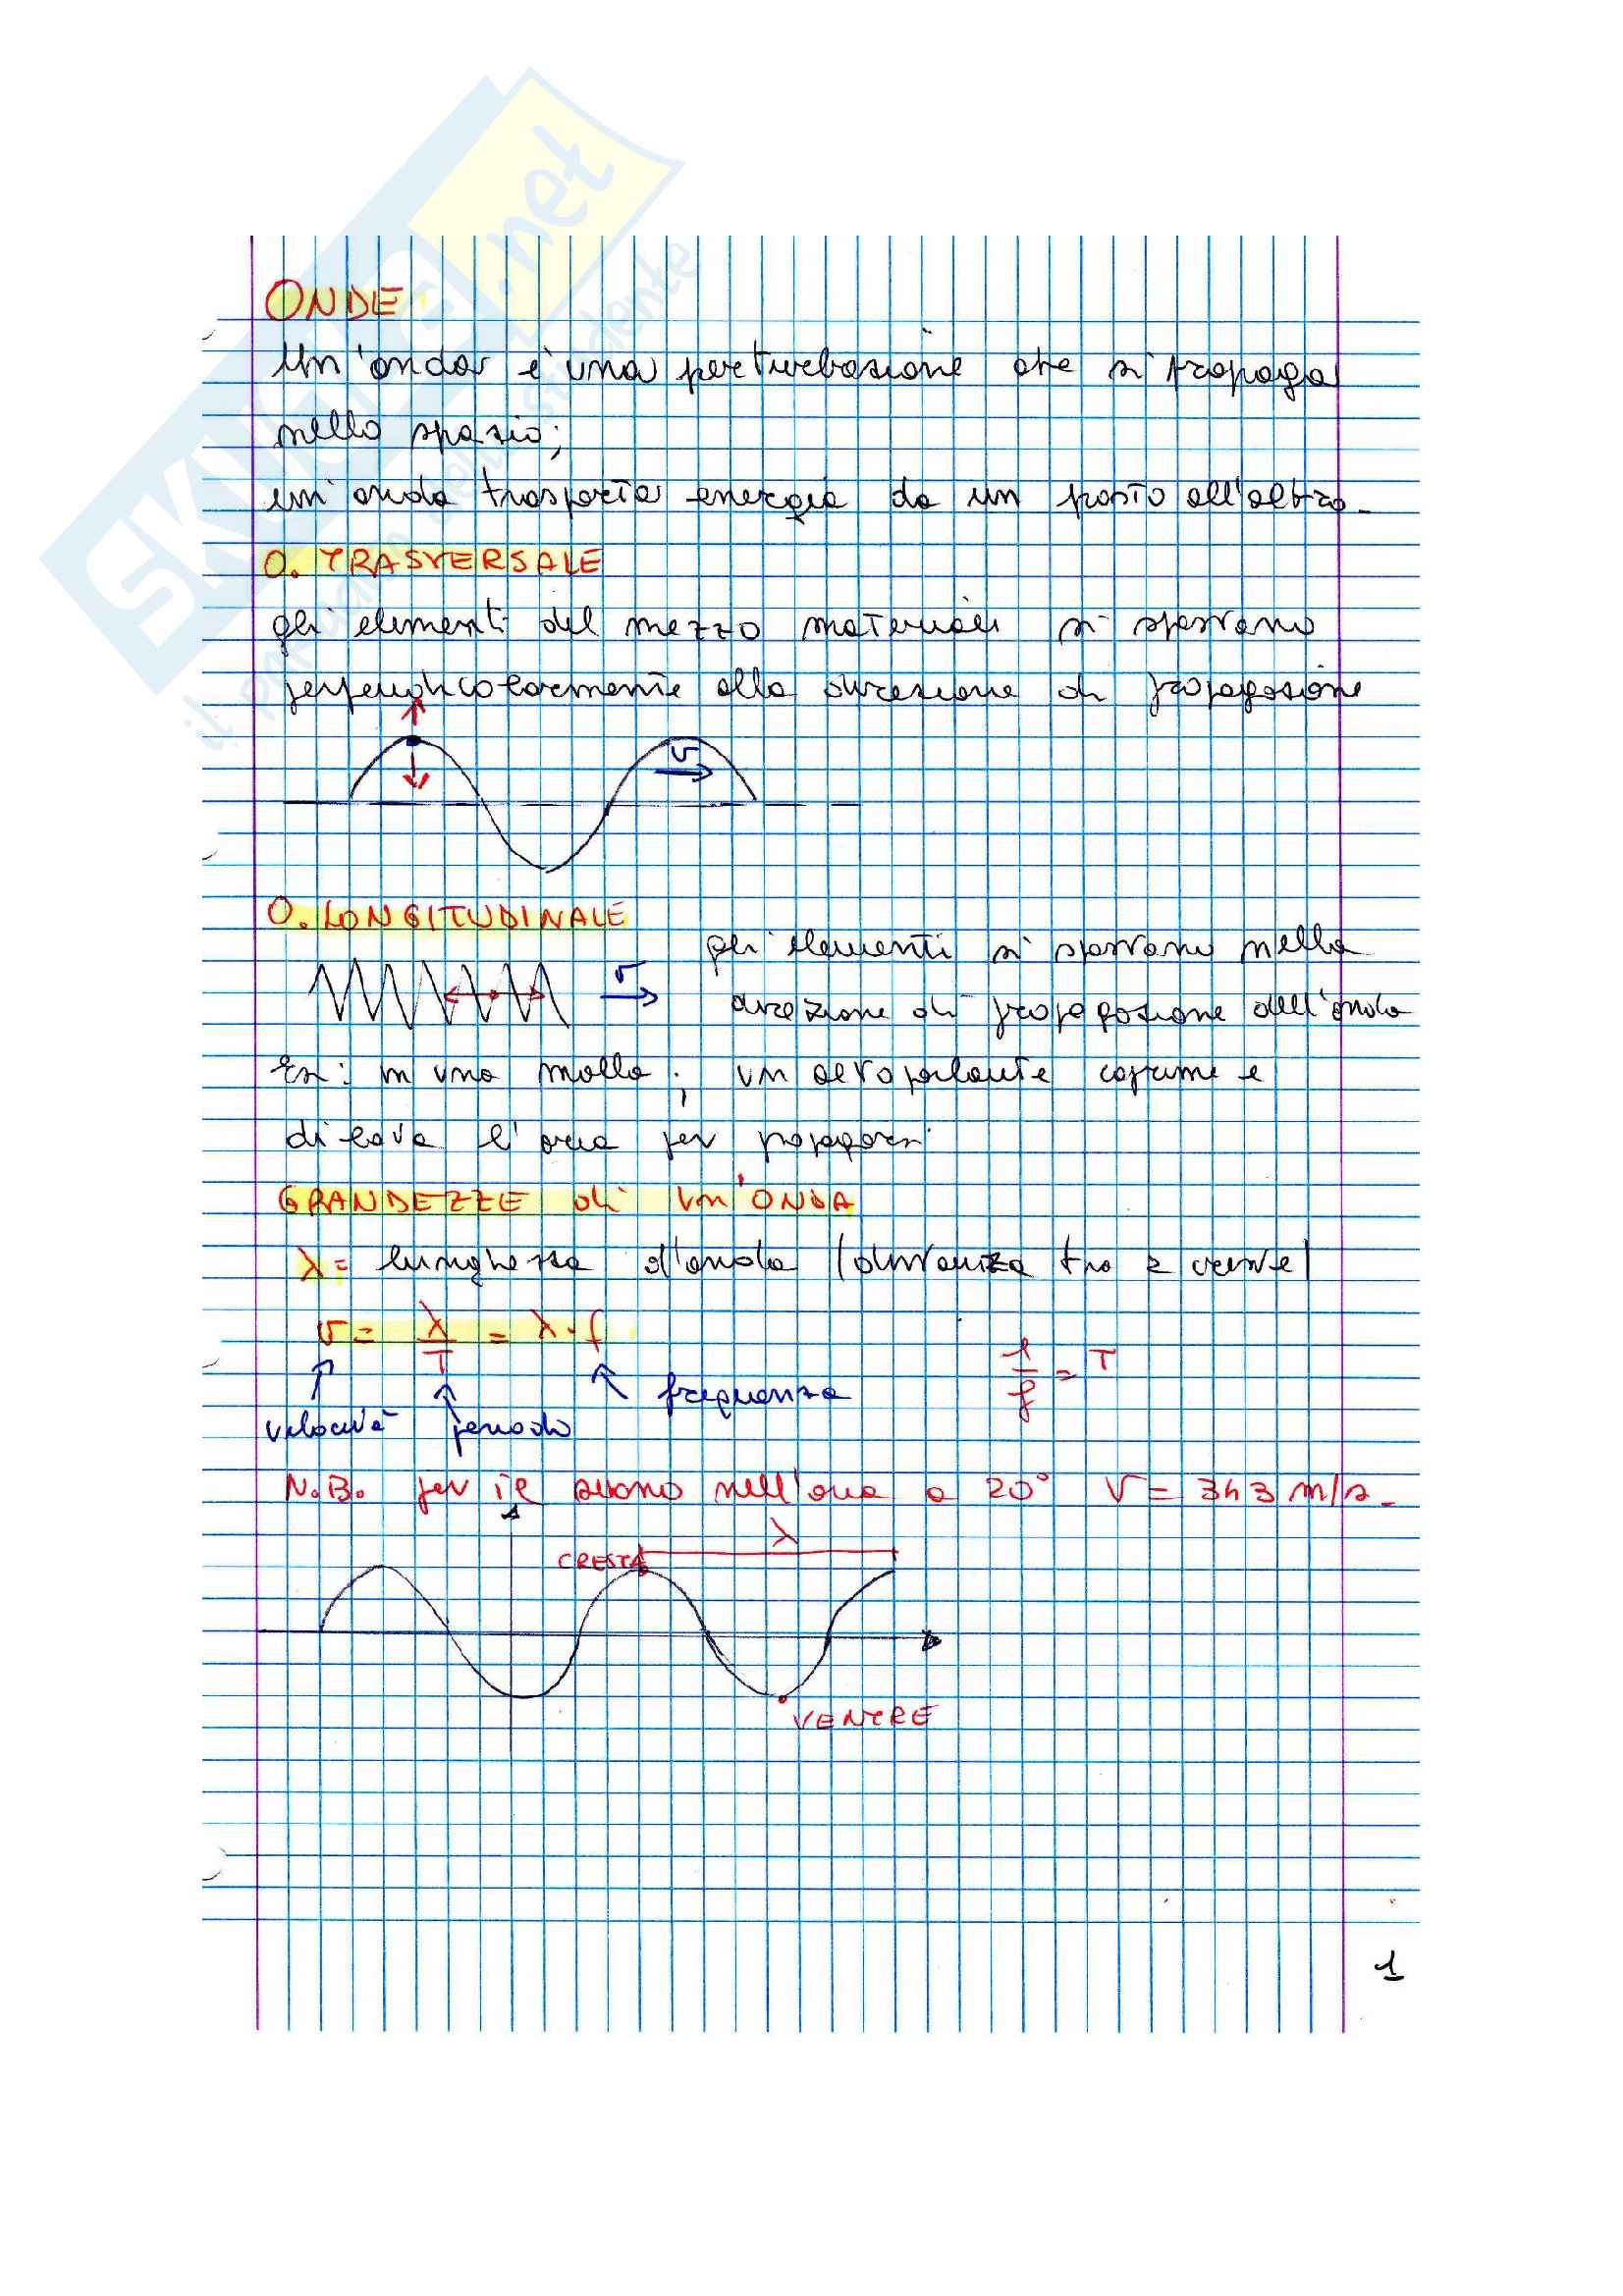 ONDE
Un'onda è una perturbazione che si propaga
nello spazio;
un'onda trasporta energia da un posto all'altro.
O. TRASVERSALE
gli elementi del mezzo materiale si spostano
perpendicolarmente alla direzione di propagazione
v
O. LONGITUDINALE
gli elementi si spostano nella
v
direzione di propagazione dell'onda
Es: in una molla; un altoparlante comprime e
dilata l'aria per propagarsi
GRANDEZZE di Un'ONDA
λ = lunghezza d'onda (distanza tra 2 creste)
v = λ/T = λ·f
1/f = T
velocità periodo frequenza
N.B. per il suono nell'aria a 20° V = 343 m/s.
λ
CRESTA
VENTRE
1
SKUOLA.net
il paradiso dello studente